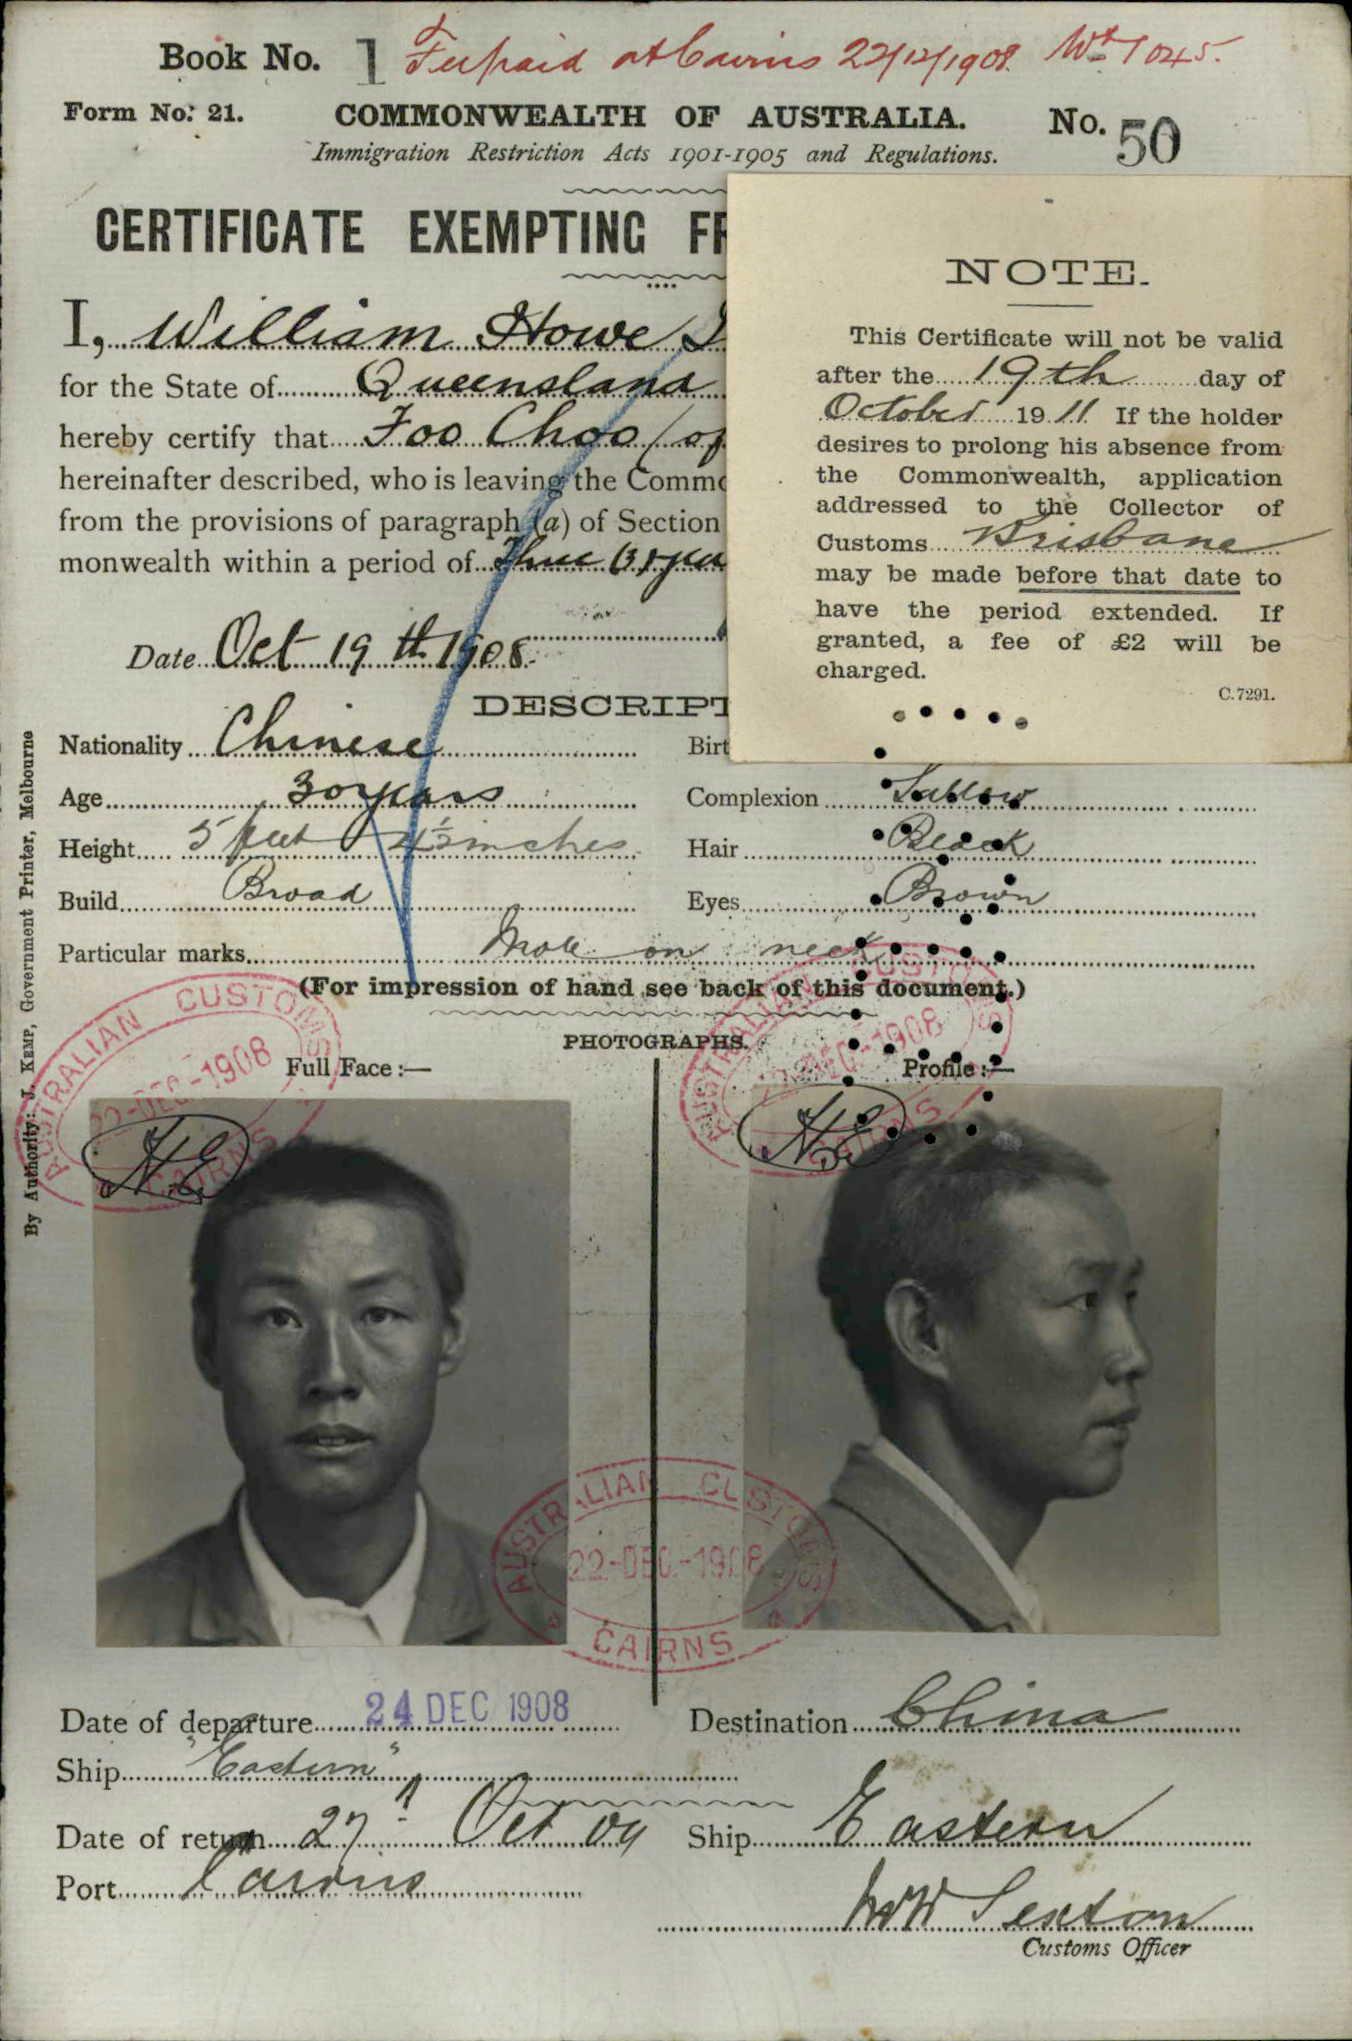 Book No. 1 Fee paid at Cairns 22/12/1908.
Form No. 21. COMMONWEALTH OF AUSTRALIA. No. 50
Immigration Restriction Acts 1901-1905 and Regulations.
CERTIFICATE EXEMPTING FR
I, William Howe I
for the State of Queensland
hereby certify that Foo Choo (of
hereinafter described, who is leaving the Commo
from the provisions of paragraph (a) of Section
monwealth within a period of Three (3) yea
Date Oct 19th 1908.
NOTE.
This Certificate will not be valid
after the 19th day of
October 1911. If the holder
desires to prolong his absence from
the Commonwealth, application
addressed to the Collector of
Customs Brisbane
may be made before that date to
have the period extended. If
granted, a fee of £2 will be
charged.
C.7291.
DESCRIPT
Nationality Chinese Birt
Age 30 years Complexion Sallow
Height 5 feet 4½ inches Hair Black
Build Broad Eyes Brown
Particular marks Mole on neck
(For impression of hand see back of this document.)
PHOTOGRAPHS.
Full Face :— Profile :—
AUSTRALIAN CUSTOMS
22-DEC-1908
CAIRNS
AUSTRALIAN CUSTOMS
22-DEC-1908
CAIRNS
AUSTRALIAN CUSTOMS
22-DEC-1908
CAIRNS
Date of departure 24 DEC 1908 Destination China
Ship "Eastern"
Date of return 27th Oct 09 Ship Eastern
Port Cairns
WW Sexton
Customs Officer
By Authority: J. KEMP, Government Printer, Melbourne